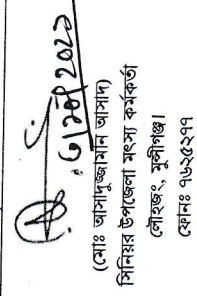 (মোঃ আসাদুজ্জামান আসাদ)
সিনিয়র উপজেলা মৎস্য কর্মকর্তা
লৌহজং, মুন্সীগঞ্জ।
ফোনঃ ৭৬২৫২৭৭